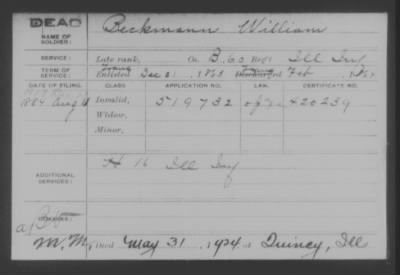 DEAD
NAME OF SOLDIER:
Beckmann William
SERVICE:
Late rank, Co. B, 60 Reg't Ill Inf
TERM OF SERVICE:
Enlisted Dec 21, 1863 Discharged Feb , 1864
DATE OF FILING. CLASS APPLICATION NO. LAW. CERTIFICATE NO.
1884 Aug Invalid, 519732 420239
Widow,
Minor,
ADDITIONAL SERVICES:
H 16 Ill Inf
REMARKS:
Died May 31, 1924 at Quincy, Ill